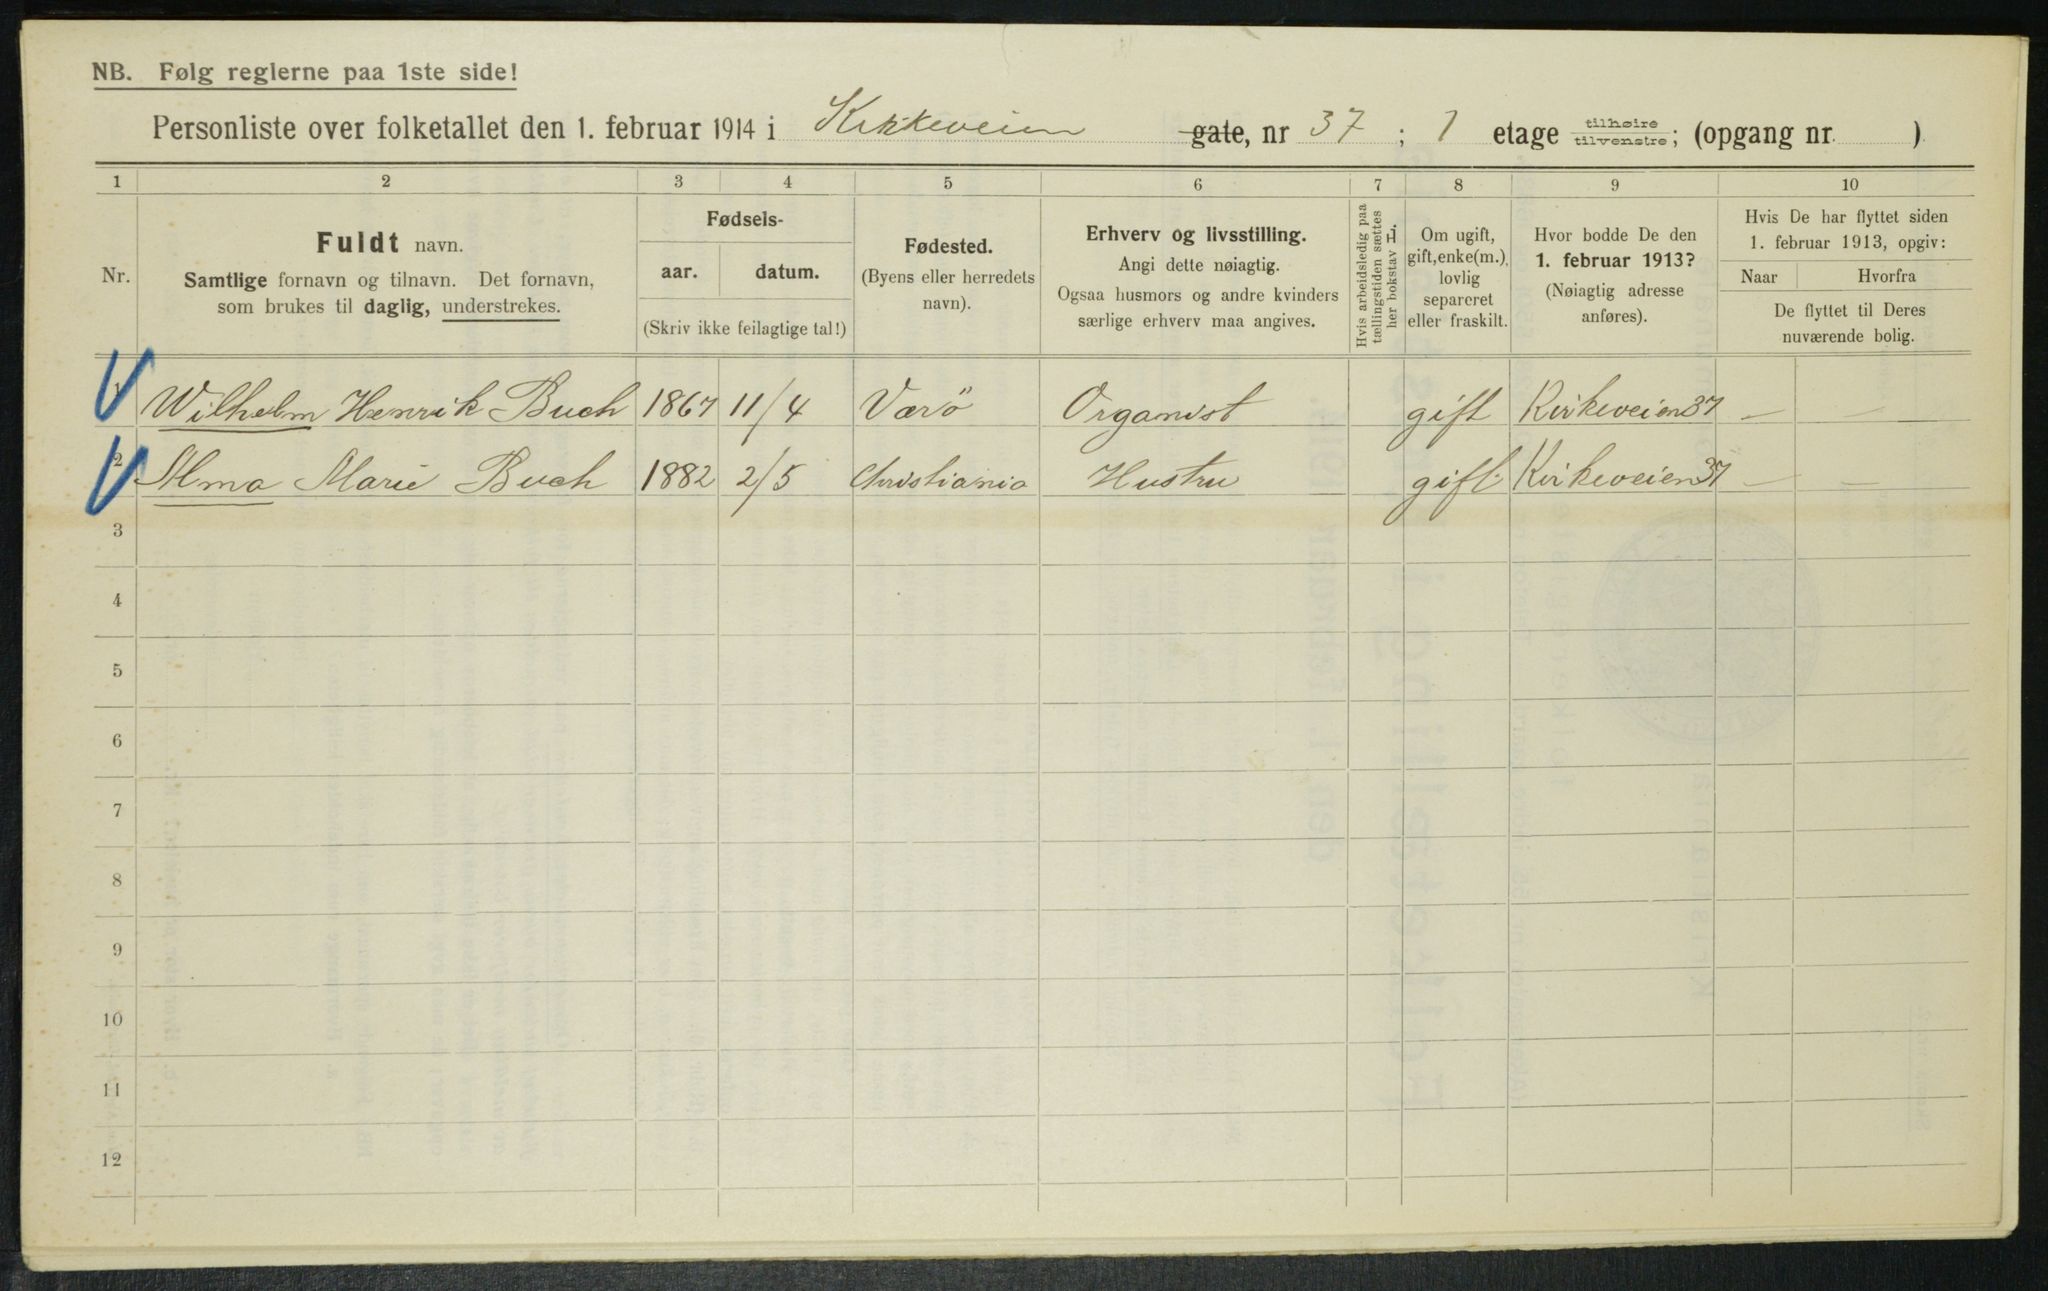 NB. Følg reglerne paa 1ste side!
Personliste over folketallet den 1. februar 1914 i Kirkeveien gate, nr 37 ; 1 etage tilhøire tilvenstre; (opgang nr. )
1 2 3 4 5 6 7 8 9 10
Nr.
Fuldt navn.
Samtlige fornavn og tilnavn. Det fornavn,
som brukes til daglig, understrekes.
Fødsels-
aar. datum.
(Skriv ikke feilagtige tal!)
Fødested.
(Byens eller herredets
navn).
Erhverv og livsstilling.
Angi dette nøiagtig.
Ogsaa husmors og andre kvinders
særlige erhverv maa angives.
Hvis arbeidsledig paa
tællingstiden sættes
her bokstav L.
Om ugift,
gift, enke(m.),
lovlig
separeret
eller fraskilt.
Hvor bodde De den
1. februar 1913?
(Nøiagtig adresse
anføres).
Hvis De har flyttet siden
1. februar 1913, opgiv:
Naar Hvorfra
De flyttet til Deres
nuværende bolig.
1 Wilhelm Henrik Buch 1867 11/4 Værö Organist gift Kirkeveien 37 — —
2 Alma Marie Buch 1882 2/5 Christiania Hustru gift Kirkeveien 37 — —
3
4
5
6
7
8
9
10
11
12